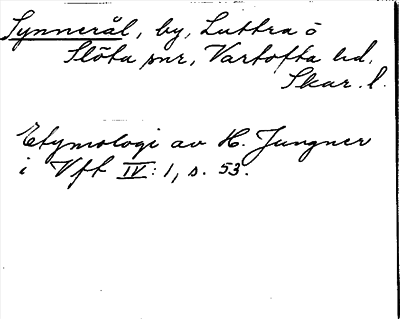 Synnerål, by, Luttra o
Slöta snr, Vartofta hd.
Skar. l.
Etymologi av H. Jungner
i Vft IV: 1, s. 53.